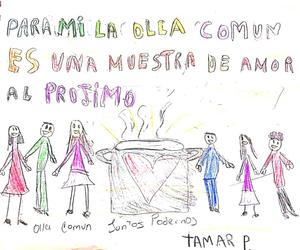 PARA Mi LA OLLA COMUN
ES UNA MUESTRA DE AMOR
AL PROJIMO
Olla Comun Juntos Podemos
TAMAR P.